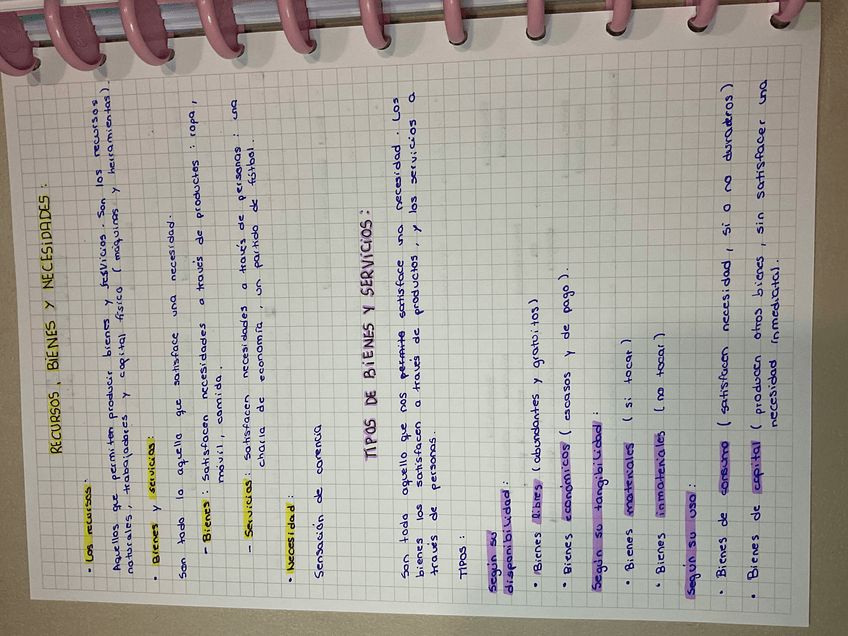 RECURSOS, BIENES Y NECESIDADES:
• Los recursos:
Aquellos que permiten producir bienes y servicios. Son los recursos
naturales, trabajadores y capital físico (máquinas y herramientas).
• Bienes y servicios:
Son todo lo aquello que satisface una necesidad.
- Bienes: Satisfacen necesidades a través de productos: ropa,
móvil, comida.
- Servicios: Satisfacen necesidades a través de personas: una
charla de economía, un partido de fútbol.
• Necesidad:
Sensación de carencia
TIPOS DE BIENES Y SERVICIOS:
Son todo aquello que nos permite satisface una necesidad. Los
bienes los satisfacen a través de productos, y los servicios a
través de personas.
TIPOS:
Según su
disponibilidad:
• Bienes libres (abundantes y gratuitos)
• Bienes económicos (escasos y de pago).
Según su tangibilidad:
• Bienes materiales (si tocar)
• Bienes inmateriales (no tocar)
Según su uso:
• Bienes de consumo (satisfacen necesidad, si o no duraderos)
• Bienes de capital (producen otros bienes, sin satisfacer una
necesidad inmediata).